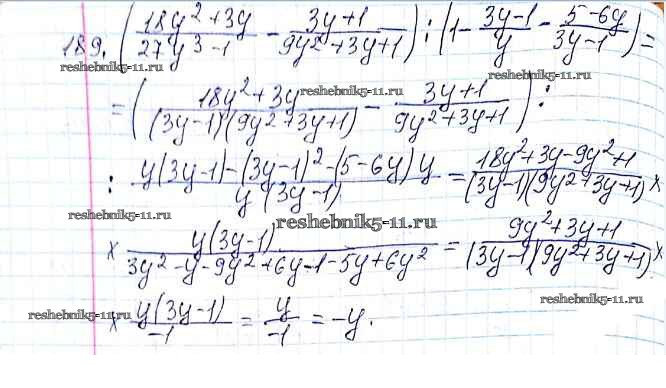 189. ( (18y² + 3y)/(27y³ - 1) - (3y+1)/(9y² + 3y + 1) ) : (1 - (3y-1)/y - (5-6y)/(3y-1)) =
reshebnik5-11.ru reshebnik5-11.ru
= ( (18y² + 3y)/((3y-1)(9y²+3y+1)) - (3y+1)/(9y²+3y+1) ) :
reshebnik5-11.ru
: (y(3y-1) - (3y-1)² - (5-6y)y)/(y(3y-1)) = (18y²+3y-9y²+1)/((3y-1)(9y²+3y+1)) ×
reshebnik5-11.ru reshebnik5-11.ru
× (y(3y-1))/(3y² - y - 9y² + 6y - 1 - 5y + 6y²) = (9y²+3y+1)/((3y-1)(9y²+3y+1)) ×
reshebnik5-11.ru reshebnik5-11.ru
× (y(3y-1))/(-1) = y/(-1) = -y.